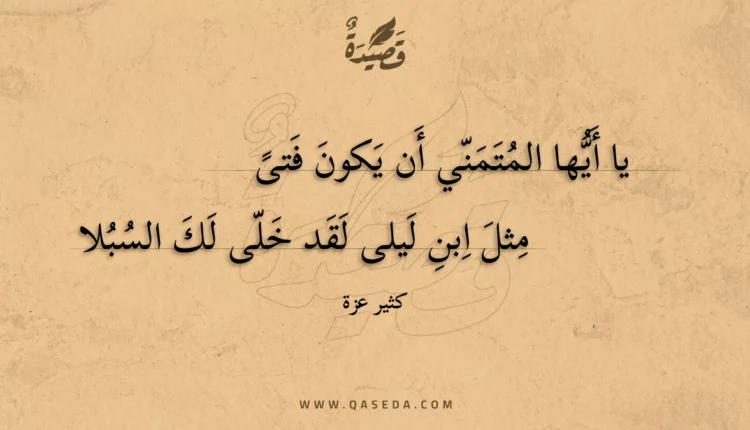 قَصِيدَةٌ
يا أَيُّها المُتَمَنّي أَن يَكونَ فَتىً
مِثلَ اِبنِ لَيلى لَقَد خَلّى لَكَ السُبُلا
كثير عزة
WWW.QASEDA.COM